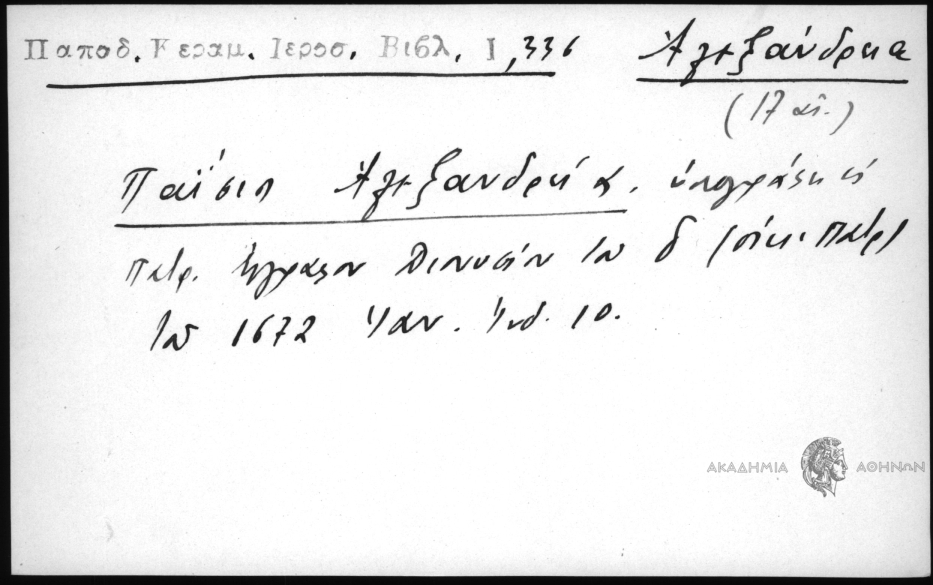 Παποδ. Κεραμ. Ιεροσ. Βιβλ. Ι, 336 Ἀλεξάνδρεια
(17 αἰ.)
Παΐσιος Ἀλεξανδρείας. ὑπογράφει εἰς
πατρ. ἔγγραφον Διονυσίου τοῦ δ
τοῦ 1672 Ἰαν. Ἰνδ. 10.
ΑΚΑΔΗΜΙΑ ΑΘΗΝΩΝ